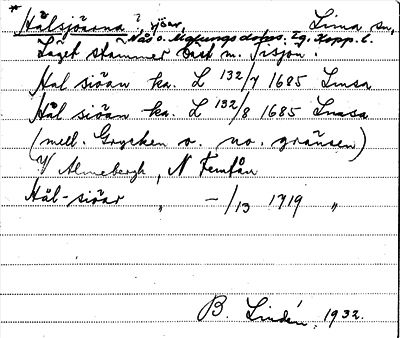 * Hålsjöarna? sjöar, Lima sn,
Nås o. Malungs doms. Lg. Kopp. l.
Läget stämmer bäst m. Tisjön.
Hal siöan ka. L 132/7 1685 Limsa
Hål siöan ka. L 132/8 1685 Limsa
(mell. Grycken o. no. gränsen)
V Almebergh, N Femtån
Hål-siöar „ -/13 1719 „
B. Lindén, 1932.